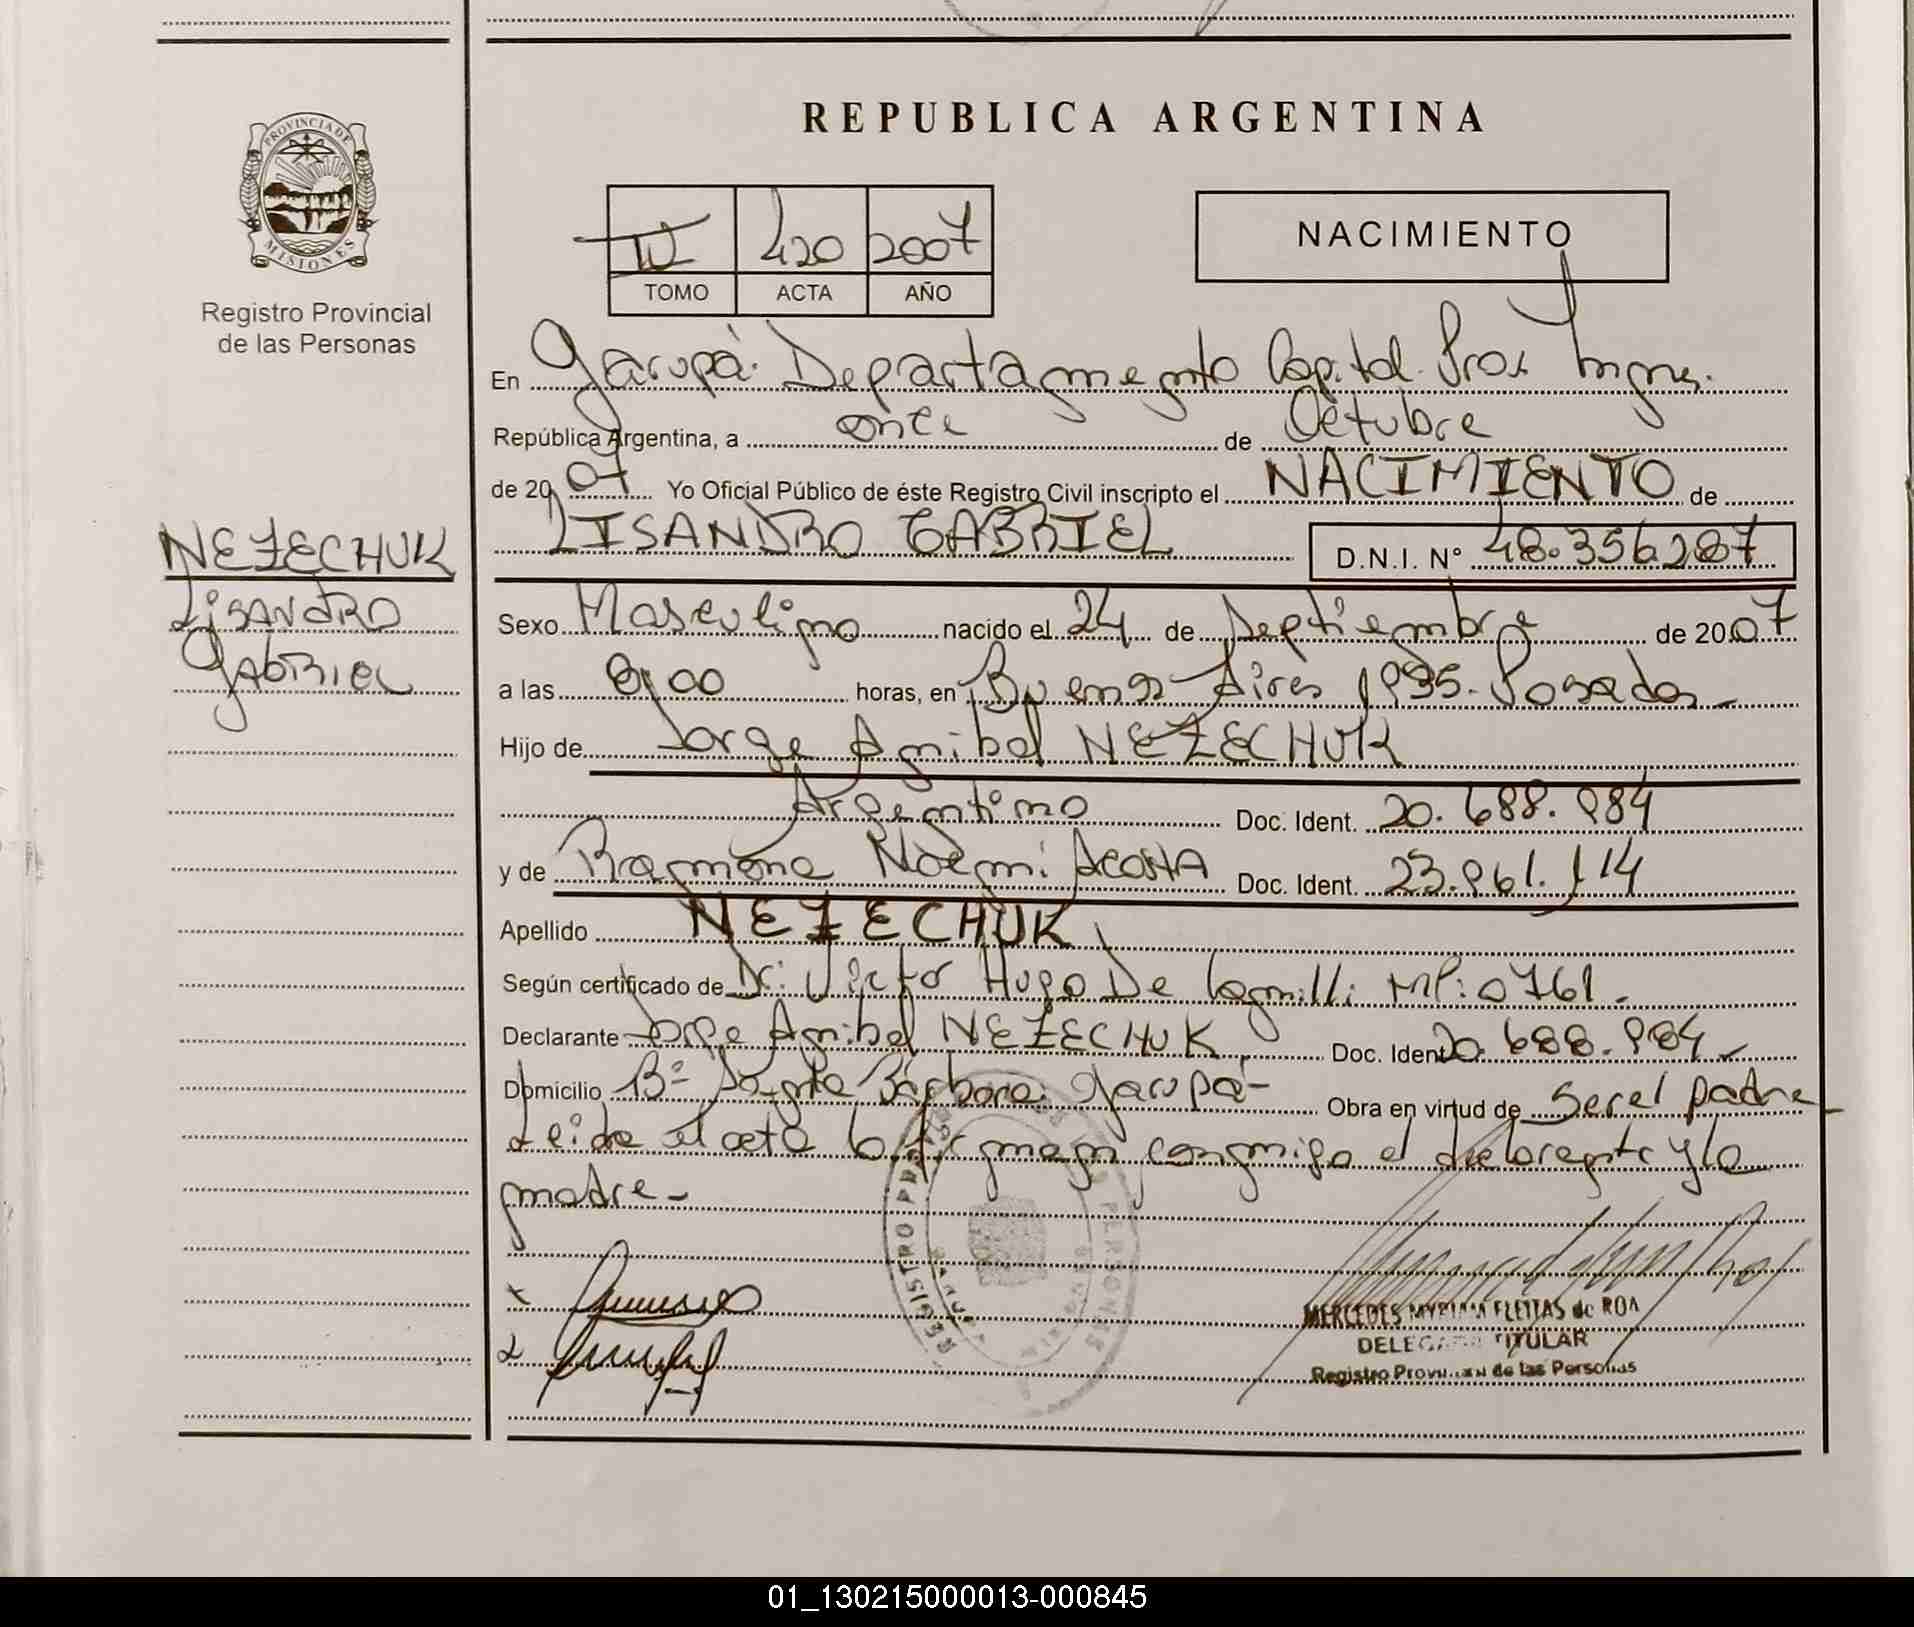 REPUBLICA ARGENTINA
PROVINCIA DE
MISIONES
Registro Provincial
de las Personas
IV 420 2007
TOMO ACTA AÑO
NACIMIENTO
En Garupá. Departamento Capital. Prov Mnes.
República Argentina, a once de Octubre
de 2007 Yo Oficial Público de éste Registro Civil inscripto el NACIMIENTO de
LISANDRO GABRIEL D.N.I. N° 48.356287
NEZECHUK
LiSANdRO
GAbRIEL
Sexo Masculino nacido el 24 de Septiembre de 2007
a las 8,00 horas, en Buenos Aires 1935. Posadas
Hijo de Jorge Anibal NEZECHUK
Argentino Doc. Ident. 20.688.984
y de Ramona Noemi Acosta Doc. Ident. 23.961.114
Apellido NEZECHUK
Según certificado de Dr: Victor Hugo De MP: 0761.
Declarante Jorge Anibal NEZECHUK Doc. Ident 20.688.984
Domicilio B° Santa Bárbara. Garupá- Obra en virtud de ser el padre
Leida el acta la firman conmigo el declarante y la
madre-
REGISTRO PROVINCIAL DE LAS PERSONAS
MERCEDES MYRIAM FLEITAS de ROA
DELEGADA TITULAR
Registro Provincial de las Personas
01_130215000013-000845